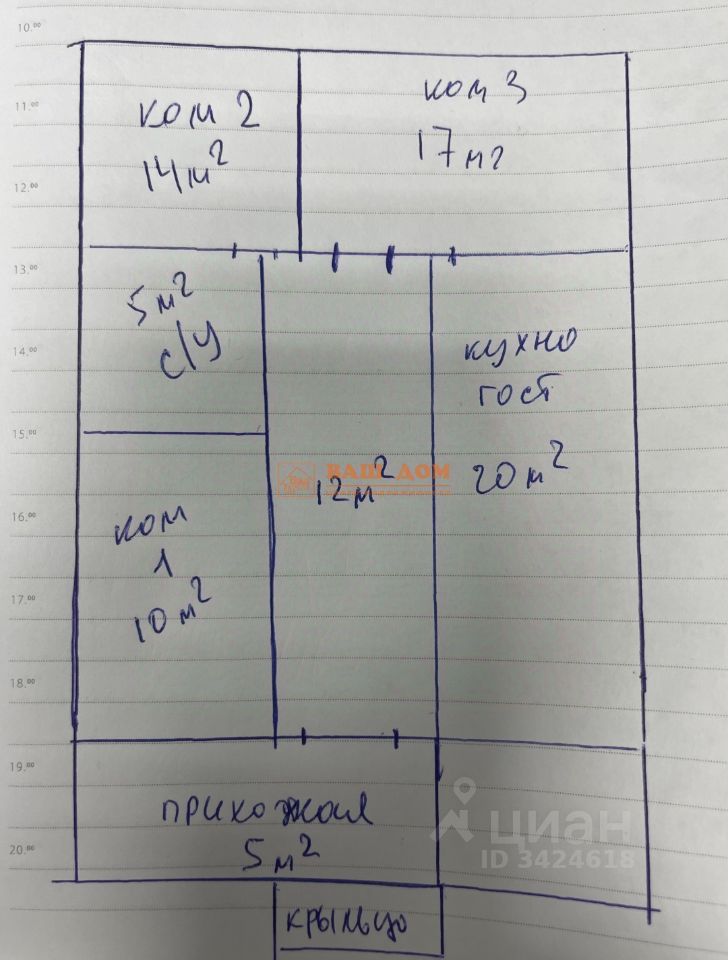 10.00
11.00
12.00
13.00
14.00
15.00
16.00
17.00
18.00
19.00
20.00
ком 2
14 м²
ком 3
17 м2
5 м²
с/у
кухно
гост
20 м²
ВАШ ДОМ
12 м²
ком
1
10 м²
прихожая
5 м²
крыльцо
циан
ID 3424618